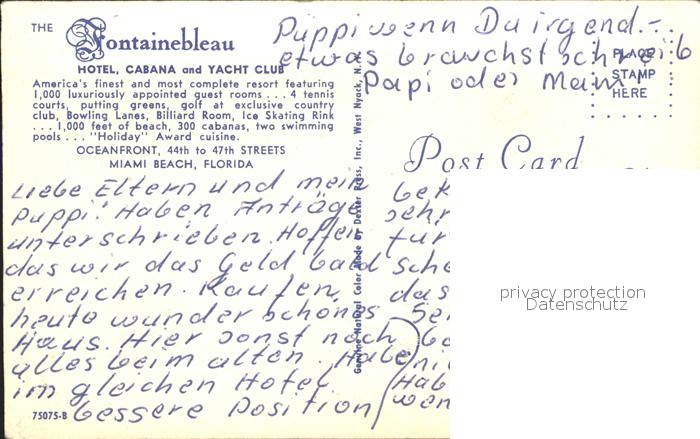 THE
Fontainebleau
HOTEL, CABANA and YACHT CLUB
America's finest and most complete resort featuring
1,000 luxuriously appointed guest rooms . . . 4 tennis
courts, putting greens, golf at exclusive country
club, Bowling Lanes, Billiard Room, Ice Skating Rink
. . . 1,000 feet of beach, 300 cabanas, two swimming
pools . . . "Holiday" Award cuisine.
OCEANFRONT, 44th to 47th STREETS
MIAMI BEACH, FLORIDA
Puppi wenn Du irgend.-
etwas brauchst schreib
Papi oder Mam
PLACE
STAMP
HERE
Post Card
Genuine Natural Color Made by Dexter Press, Inc., West Nyack, N.Y.
Liebe Eltern und mein
Puppi! Haben Anträge
unterschrieben. Hoffen
das wir das Geld bald
erreichen. Kaufen
heute wunderschönes
Haus. Hier sonst noch
alles beim alten. Habe
im gleichen Hotel
bessere Position
bek
sehr
für
sche
das
Sei
ba
nic
Hab
wen
75075-B
privacy protection
Datenschutz